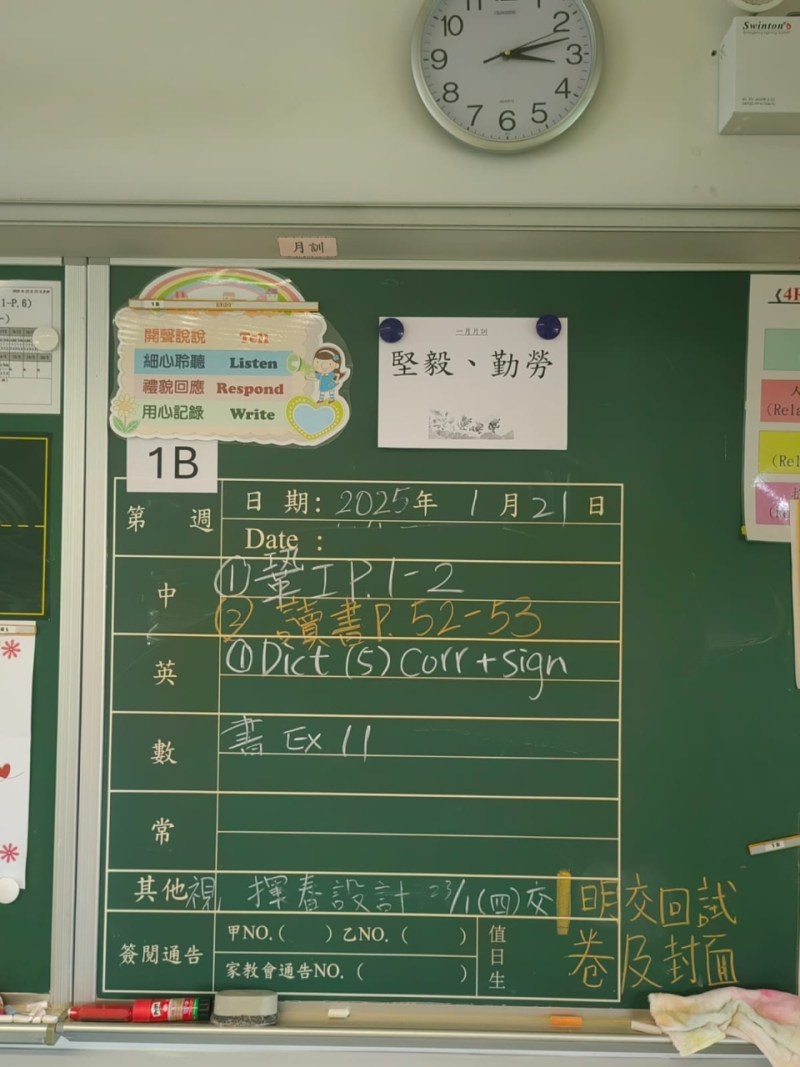 10
2
9
3
8
4
7
6
5
QUARTZ
Swinton
月訓
1-P.6)
開聲說說 Tell
細心聆聽 Listen
禮貌回應 Respond
用心記錄 Write
一月月訓
堅毅、勤勞
《4R
人
(Rela
(Rel
1B
第 週
日 期: 2025年 1月21日
Date :
中
①鞏工P.1-2
②讀書P.52-53
英
①Dict (5) Corr + sign
數
書 Ex 11
常
其他
視 揮春設計 23/1(四)交
明交回試
卷及封面
簽閱通告
甲NO.( ) 乙NO. ( )
家教會通告NO. ( )
值日生